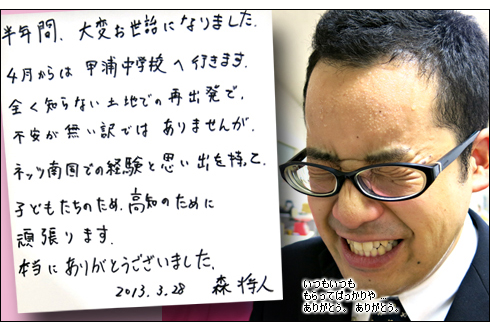 半年間、大変お世話になりました。
4月からは 甲浦中学校へ行きます。
全く知らない土地での再出発で、
不安が無い訳ではありませんが、
ネッツ南国での経験と思い出を持って、
子どもたちのため、高知のために
頑張ります。
本当にありがとうございました。
2013.3.28
いつもいつも
もらってばっかりや…
ありがとう、ありがとう。